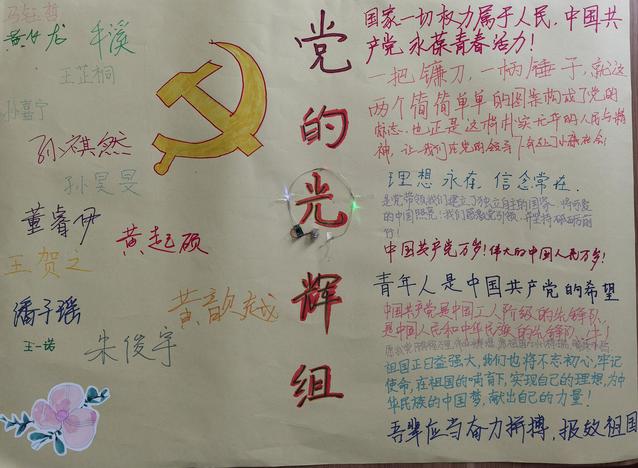 马钰哲
黄竹龙
牛溪
王芷桐
孙嘉宁
孙祺然
孙昊旻
董睿伊
黄起硕
王贺之
潘子瑶
黄歆越
王一诺
朱俊宇
党的光辉组
国家一切权力属于人民，中国共
产党永葆青春活力！
一把镰刀，一柄锤子，就这
两个简简单单的图案构成了党的
标志，也正是这种朴实无华的人民与精
神，让我们在党的领导下奔赴小康社会！
理想永在，信念常在．
是党带领我们建立了独立自主的国家，将可爱
的中国照亮：我们愿教党引领，并坚持砥砺前
行！
中国共产党万岁！伟大的中国人民万岁！
青年人是中国共产党的希望
中国共产党是中国工人阶级的先锋队
是中国人民和中华民族的先锋队
祖国正日益强大，我们也将不忘初心，牢记
使命，在祖国的哺育下，实现自己的理想，为中
华民族的中国梦，献出自己的力量！
吾辈应当奋力拼搏，报效祖国